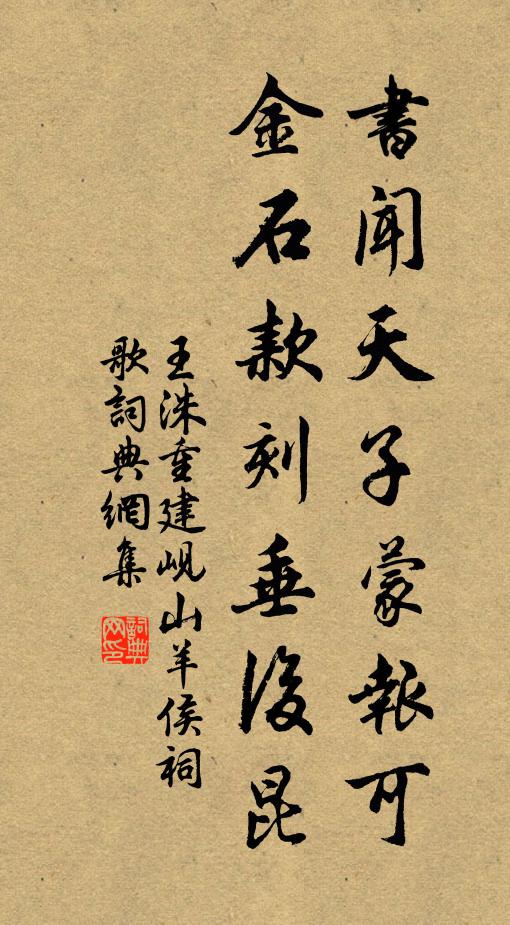 書聞天子蒙報可
金石款刻垂後昆
王洙重建峴山羊侯祠
歌詞典網集
詞典網印